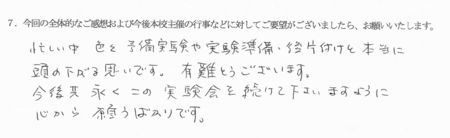 7．今回の全体的なご感想および今後本校主催の行事などに対してご要望がございましたら、お願いいたします。
忙しい中 色々予備実験や実験準備・後片付けと本当に
頭の下がる思いです。有難とうございます。
今後共 永くこの実験会を続けて下さいますように
心から願うばかりです。